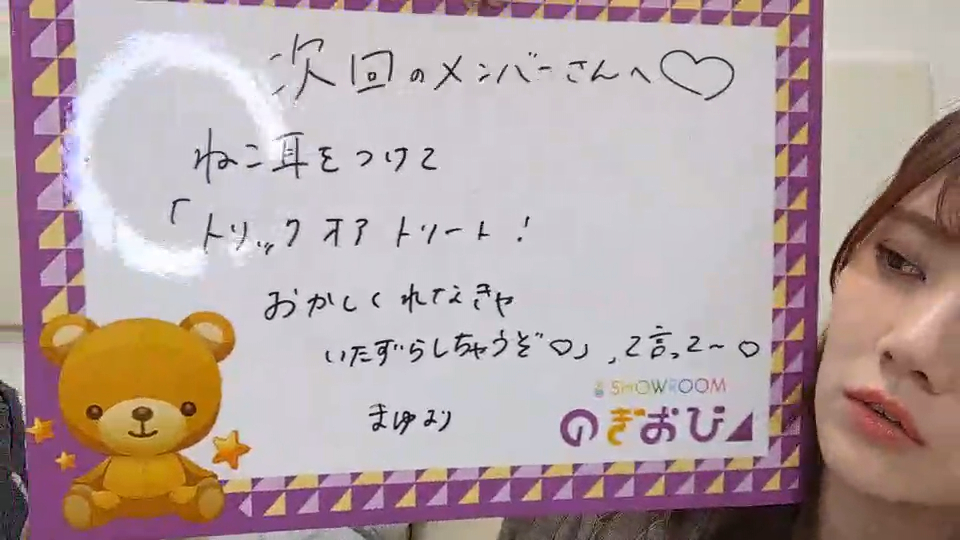 次回のメンバーさんへ♡
ねこ耳をつけて
「トリックオアトリート!
おかしくれてえきゃ
いたずらしちゃうぞ♡」,て言って〜♡
まゆより
SHOWROOM
のぎおび